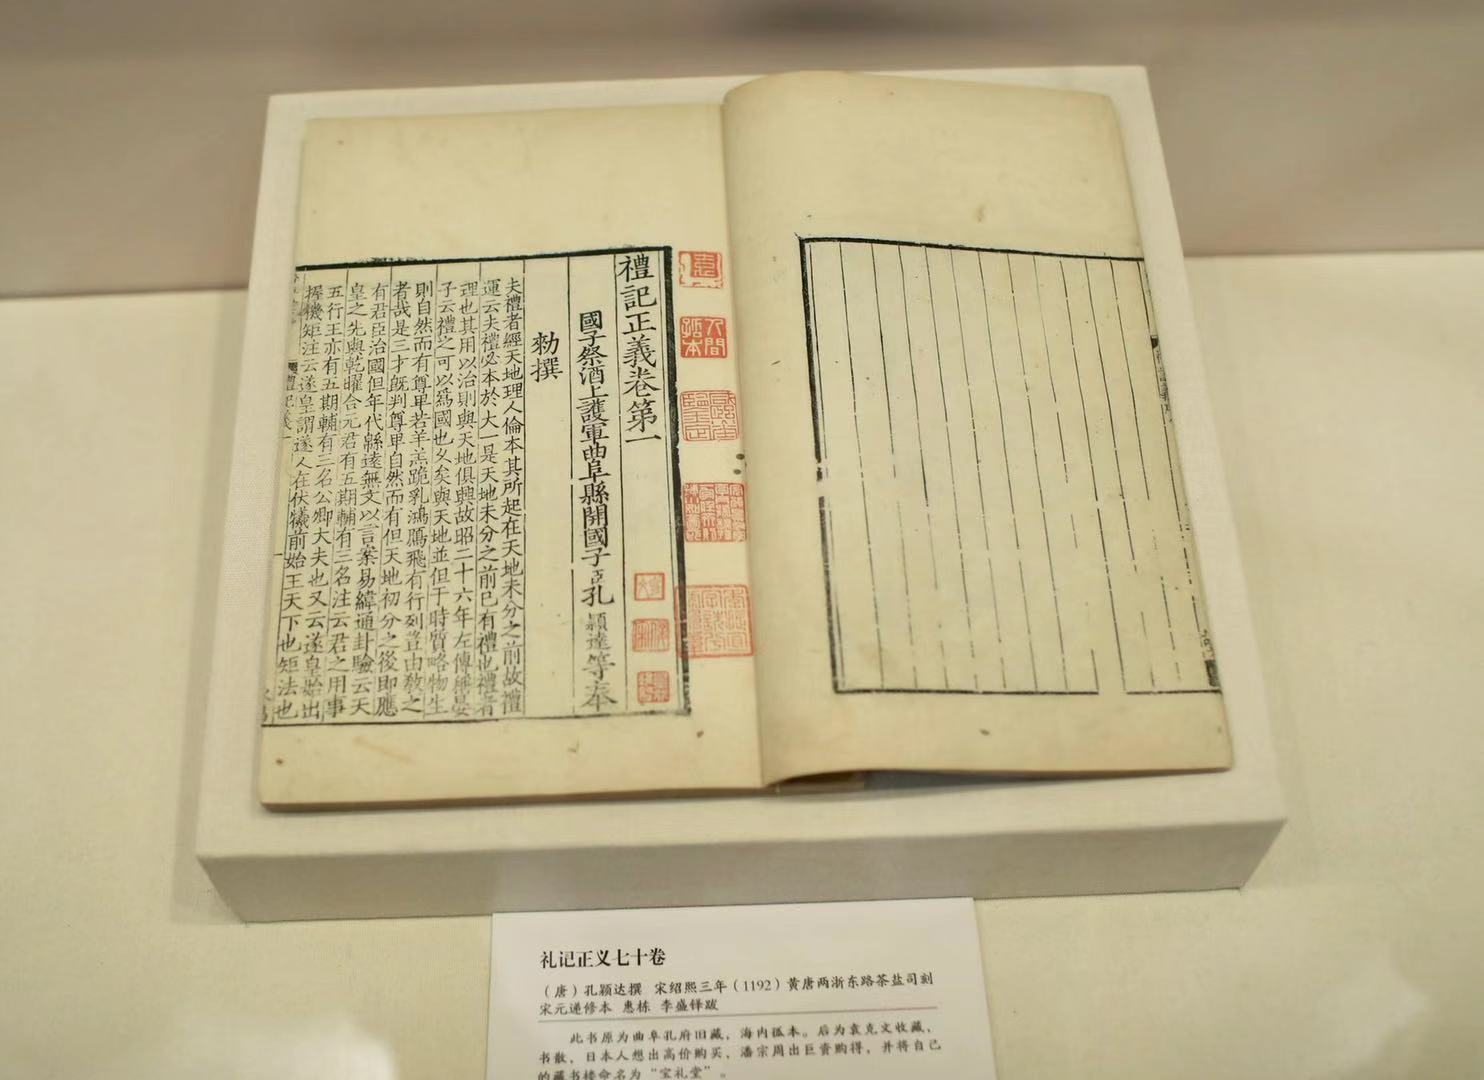 禮記正義卷第一
國子祭酒上護軍曲阜縣開國子臣孔穎達等奉
勑撰
夫禮者經天地理人倫本其所起在天地未分之前故禮
運云夫禮必本於大一是天地未分之前已有禮也禮者
理也其用以治則與天地俱興故昭二十六年左傳稱晏
子云禮之可以爲國也乆矣與天地並但于時質略物生
則自然而有尊卑若羊羔跪乳鴻鴈飛有行列豈由教之
者哉是三才旣判尊卑自然而有但天地初分之後即應
有君臣治國但年代縣遠無文以言案易緯通卦驗云天
皇之先與乾曜合元君有五期輔有三名注云君之用事
五行王亦有五期輔有三名公卿大夫也又云遂皇始出
握機矩注云遂皇謂遂人在伏犧前始王天下也矩法也
人間
孤本
礼记正义七十卷
（唐）孔颖达撰 宋绍熙三年（1192）黄唐两浙东路茶盐司刻
宋元递修本 惠栋 李盛铎跋
此书原为曲阜孔府旧藏，海内孤本。后为袁克文收藏，
书散，日本人想出高价购买，潘宗周出巨资购得，并将自己
的藏书楼命名为“宝礼堂”。